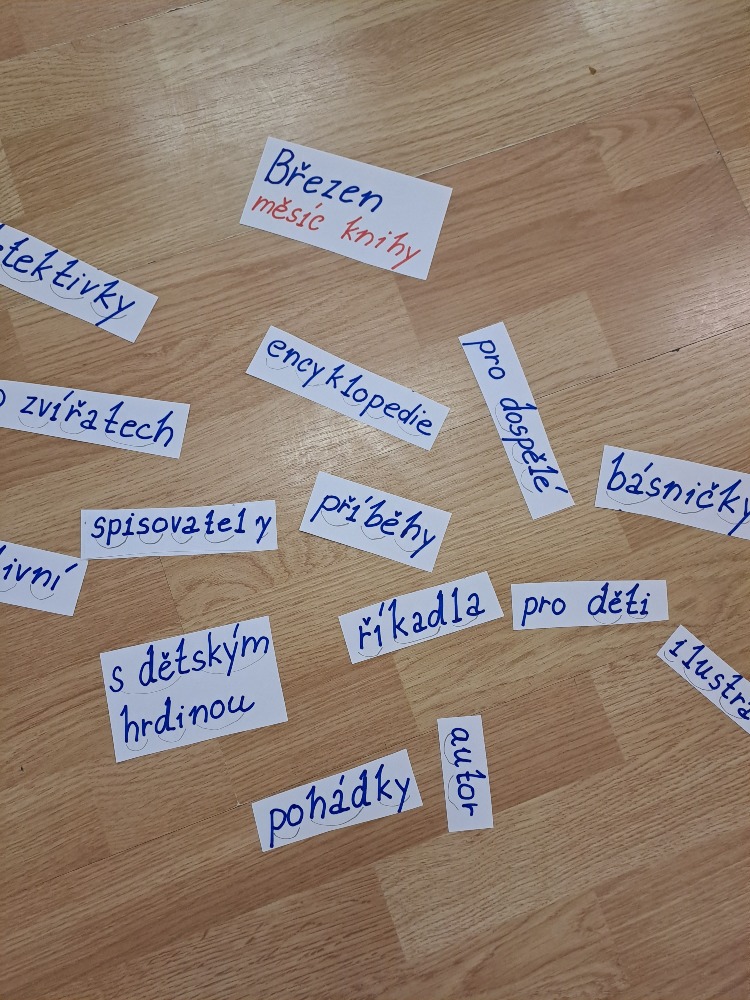 Březen
měsíc knihy
encyklopedie
pro dospělé
zvířatech
básničky
spisovately
příběhy
říkadla
pro děti
s dětským
hrdinou
pohádky
autor